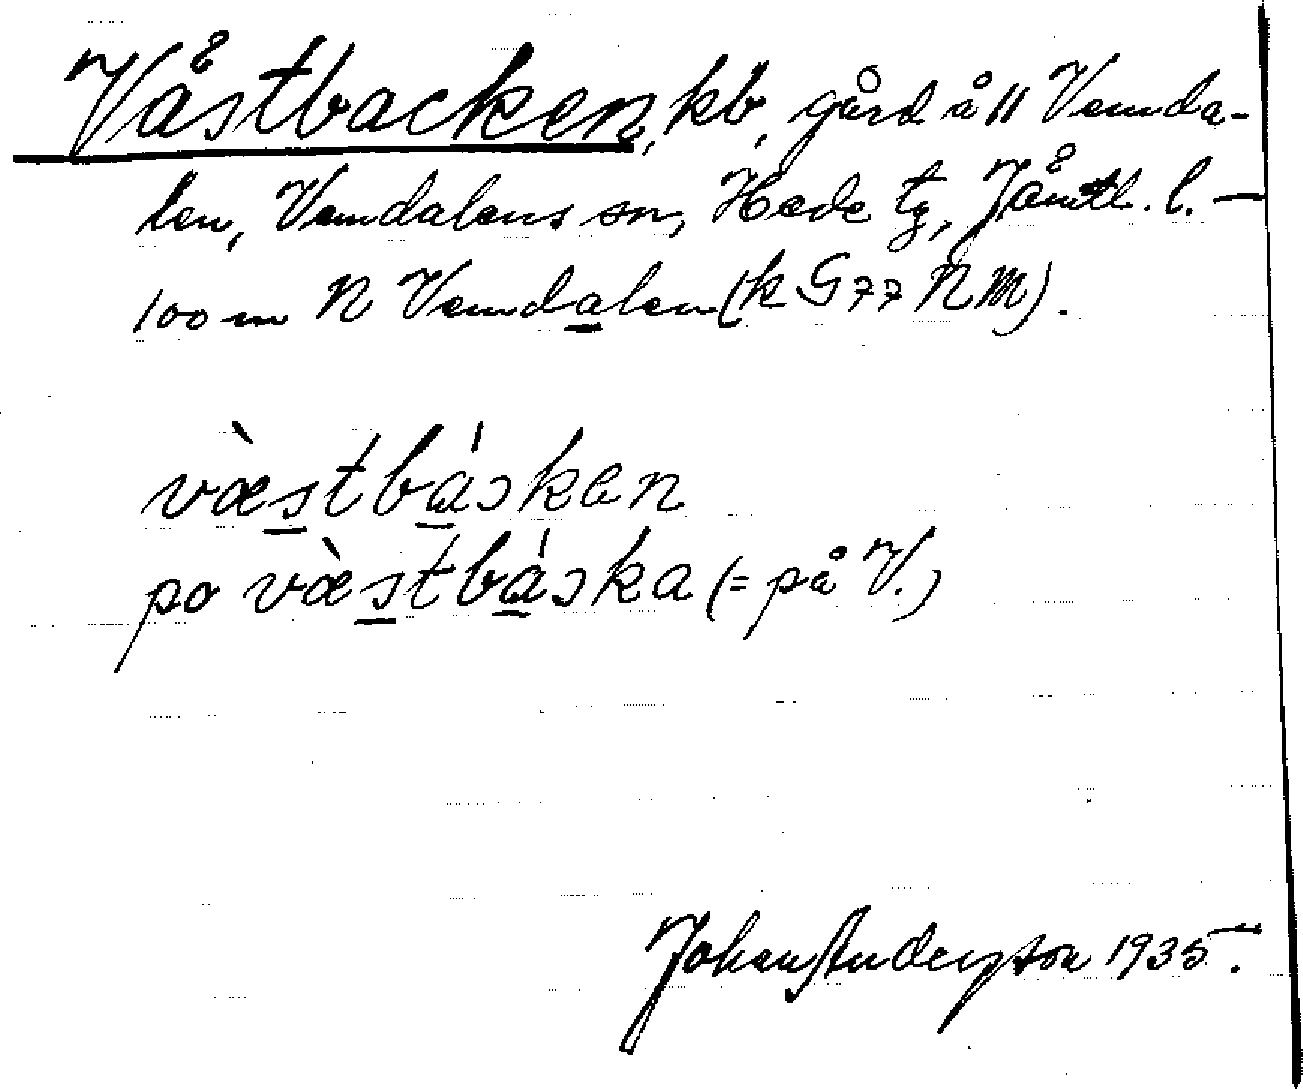 Våstbacken, kb, gård å 11 Vemda-
len, Vemdalens sn, Hede tg, Jåmtl. l. —
100 m N Vemdalen (k G77 NM).
væ̀stbáɔken
po væ̀stbáɔka (= på V.)
Johan Anderzson 1935.